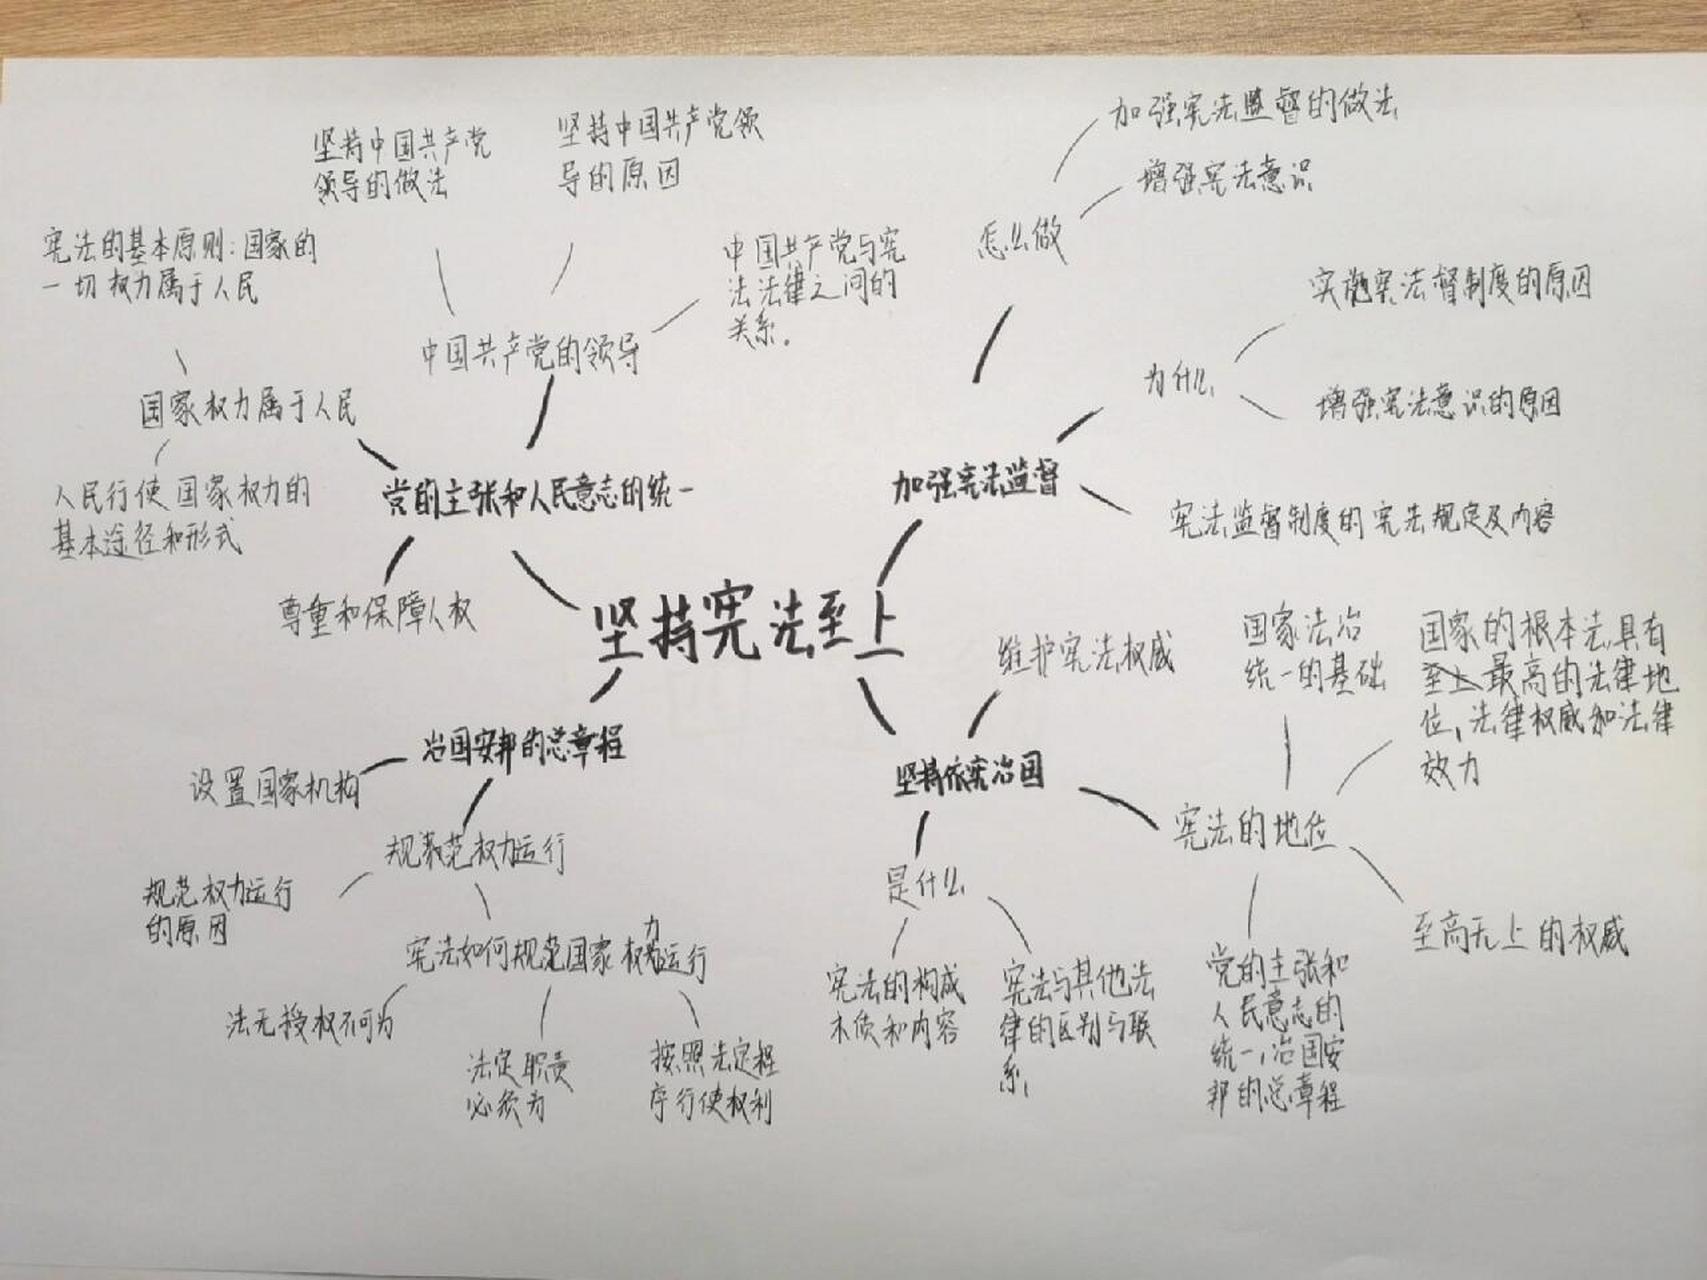 坚持宪法至上
党的主张和人民意志的统一
中国共产党的领导
坚持中国共产党
领导的做法
坚持中国共产党领
导的原因
中国共产党与宪
法法律之间的
关系。
国家权力属于人民
宪法的基本原则:国家的
一切权力属于人民
人民行使国家权力的
基本途径和形式
尊重和保障人权
治国安邦的总章程
设置国家机构
规范权力运行
规范权力运行
的原因
宪法如何规范国家权力运行
法无授权不可为
法定职责
必须为
按照法定程
序行使权利
加强宪法监督
怎么做
加强宪法监督的做法
增强宪法意识
为什么
实施宪法督制度的原因
增强宪法意识的原因
宪法监督制度的宪法规定及内容
坚持依宪治国
维护宪法权威
是什么
宪法的构成
本质和内容
宪法与其他法
律的区别与联
系
宪法的地位
国家法治
统一的基础
国家的根本法具有
至上最高的法律地
位,法律权威和法律
效力
至高无上的权威
党的主张和
人民意志的
统一,治国安
邦的总章程